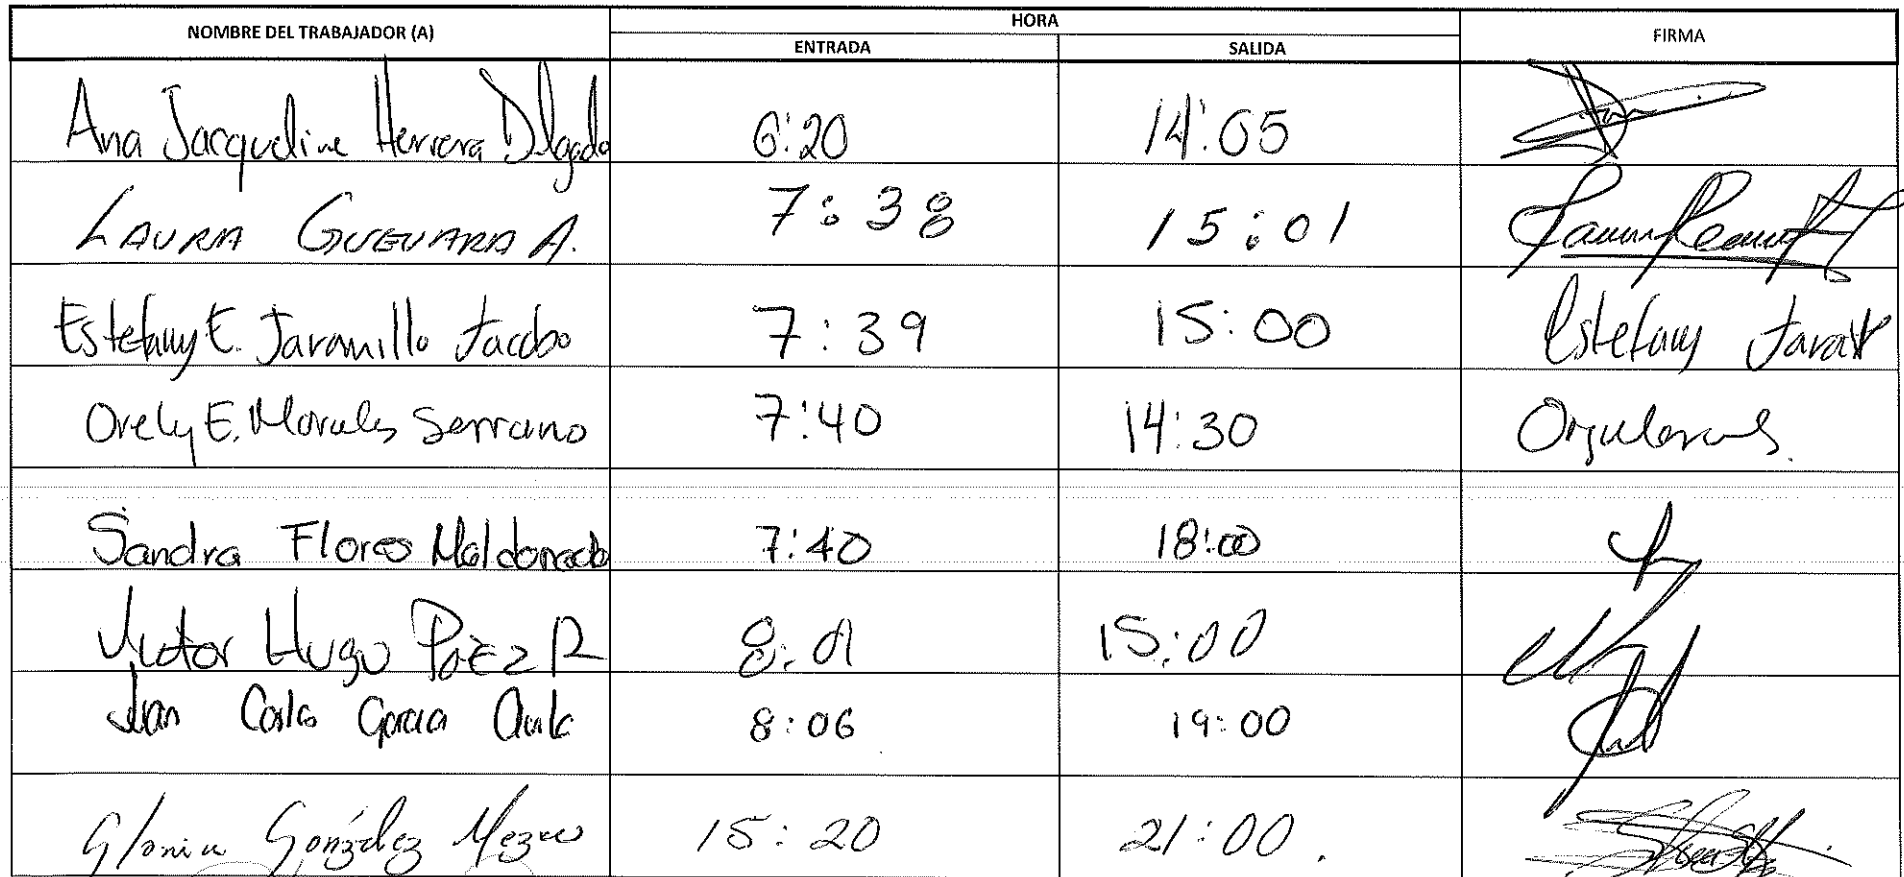 NOMBRE DEL TRABAJADOR (A) HORA FIRMA
ENTRADA SALIDA
Ana Jacqueline Herrera Dlgado 6:20 14:05
LAURA GUEVARA A. 7:38 15:01
Estefany E. Jaramillo Jacobo 7:39 15:00 Estefany
Orely E. Morales Serrano 7:40 14:30
Sandra Flores Maldonado 7:40 18:00
Victor Hugo Paez R 8:01 15:00
Juan Carlos Garcia 8:06 19:00
Gloria González 15:20 21:00